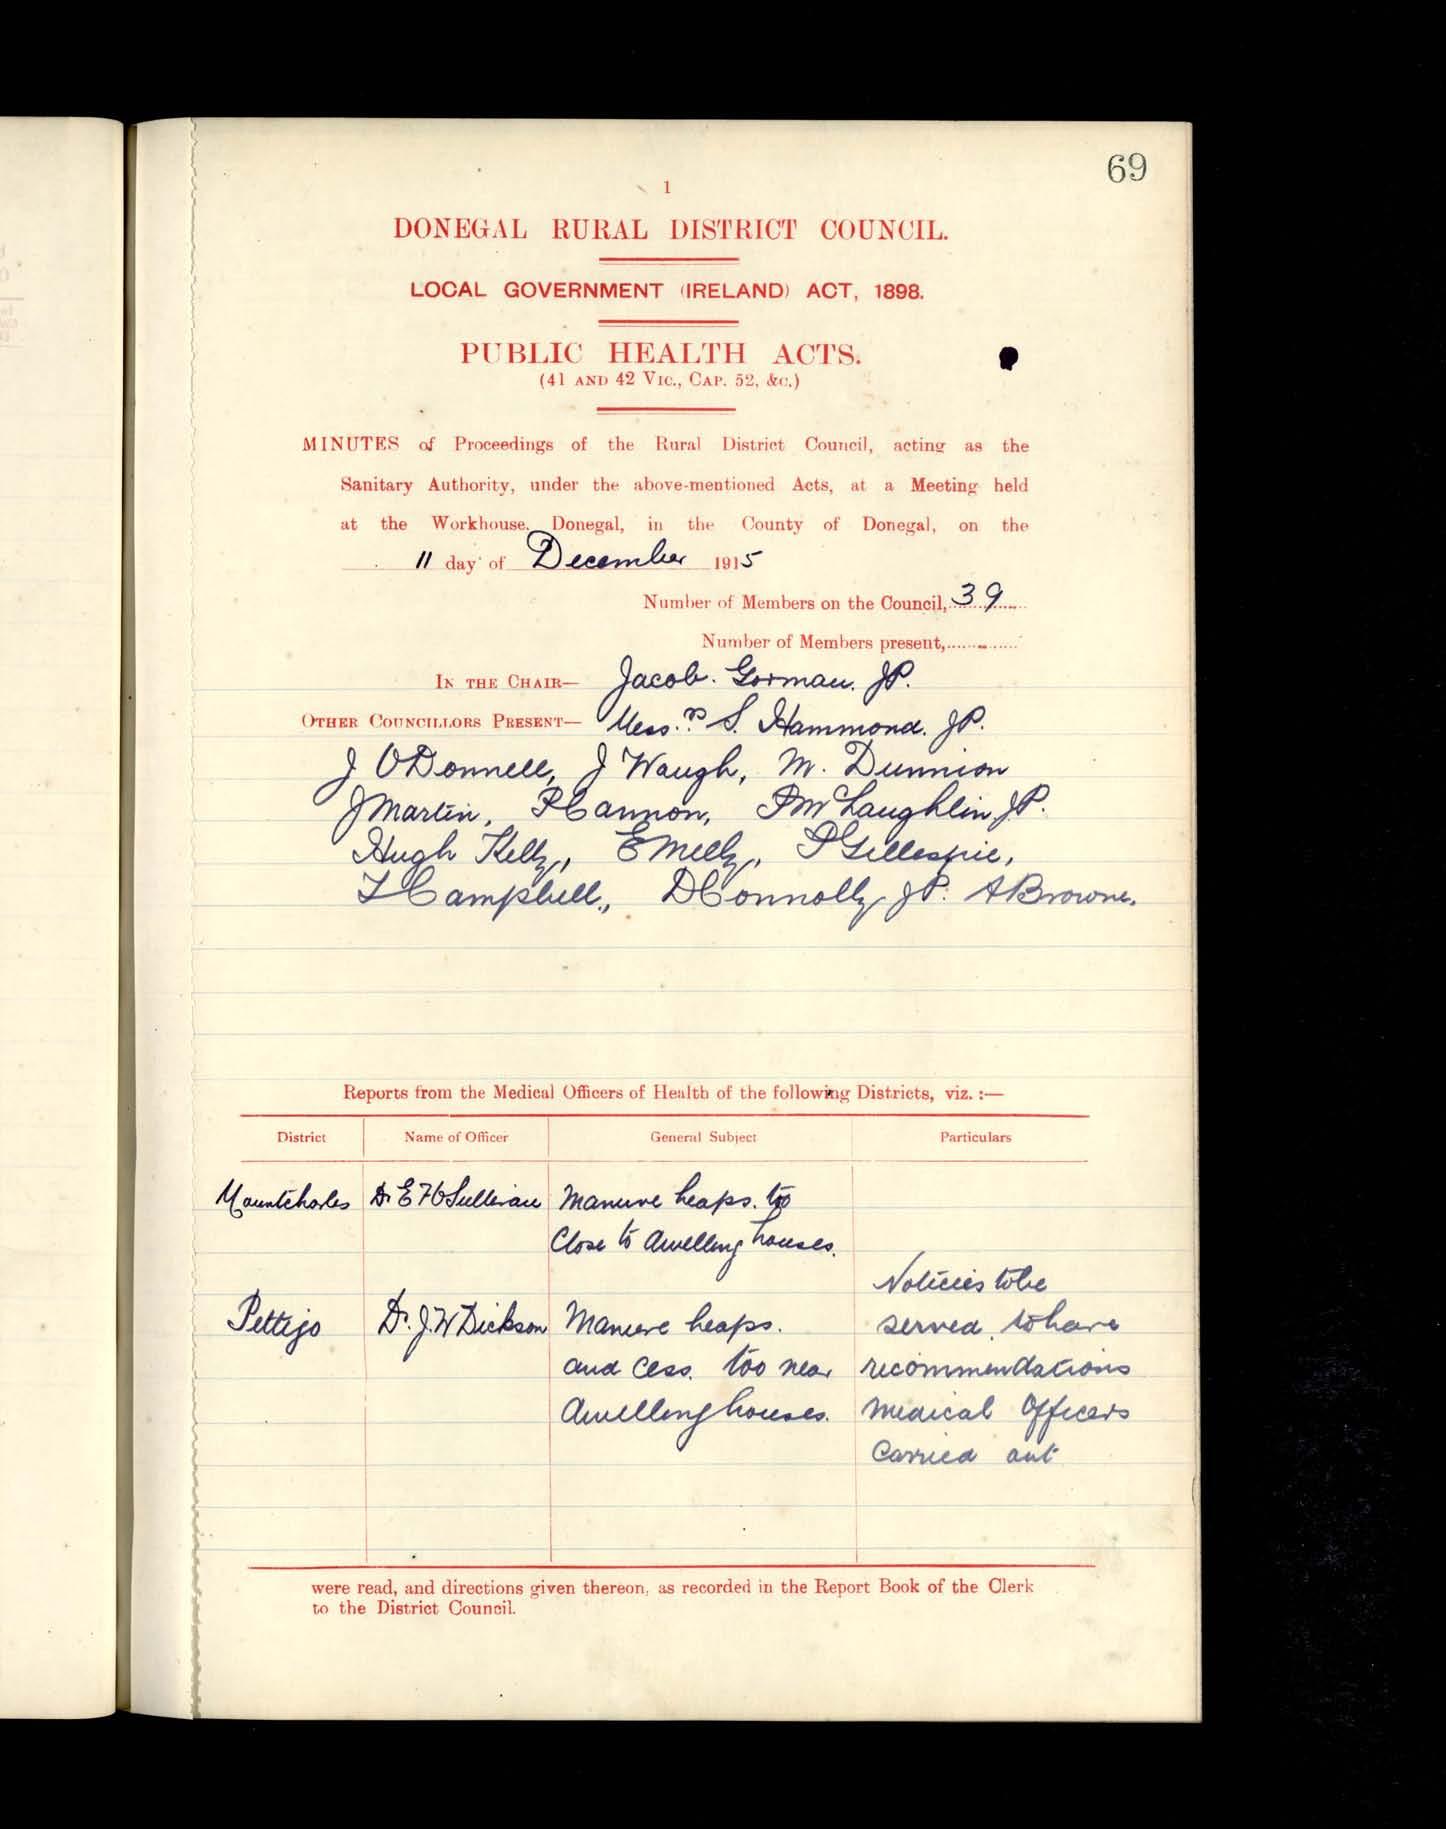 69
1
DONEGAL RURAL DISTRICT COUNCIL.
LOCAL GOVERNMENT (IRELAND) ACT, 1898.
PUBLIC HEALTH ACTS.
(41 AND 42 VIC., CAP. 52, &C.)
MINUTES of Proceedings of the Rural District Council, acting as the
Sanitary Authority, under the above-mentioned Acts, at a Meeting held
at the Workhouse, Donegal, in the County of Donegal, on the
11 day of December 1915
Number of Members on the Council, 39
Number of Members present,
IN THE CHAIR— Jacob. Gorman. JP.
OTHER COUNCILLORS PRESENT— Mess.rs S. Hammond. JP.
J O'Donnell, J Waugh, M. Dunnion
J Martin, P Cannon, P McLaughlin, JP.
Hugh Kelly, E Melly, P Gillespie,
T Campbell, D Connolly JP. A Browne.
Reports from the Medical Officers of Health of the following Districts, viz. :—
District Name of Officer General Subject Particulars
Mountcharles Dr E F O'Sullivan Manure heaps. too
Close to dwelling houses.
Noticies to be
Pettigo Dr. J. W Dickson Manure heaps. served, to have
and cess. too near recommendations
dwelling houses. Medical Officers
Carried out
were read, and directions given thereon, as recorded in the Report Book of the Clerk
to the District Council.